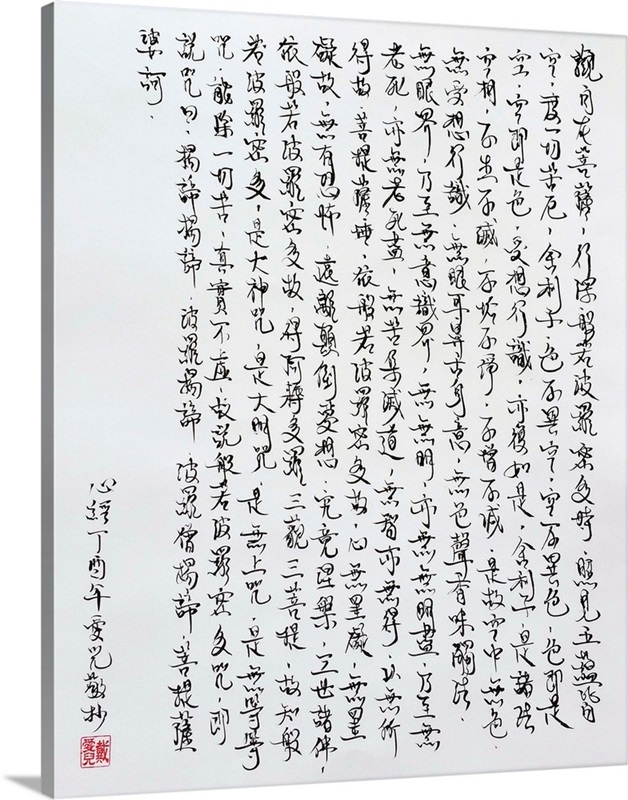 觀自在菩薩,行深般若波羅蜜多時,照見五蘊皆
空,度一切苦厄,舍利子,色不異空,空不異色,色即是
空,空即是色,受想行識,亦復如是,舍利子,是諸法
空相,不生不滅,不垢不淨,不增不減,是故空中無色,
無受想行識,無眼耳鼻舌身意,無色聲香味觸法,
無眼界,乃至無意識界,無無明,亦無無明盡,乃至無
老死,亦無老死盡,無苦集滅道,無智亦無得,以無所
得故,菩提薩埵,依般若波羅蜜多故,心無罣礙,無罣
礙故,無有恐怖,遠離顛倒夢想,究竟涅槃,三世諸佛,
依般若波羅蜜多故,得阿耨多羅三藐三菩提,故知般
若波羅蜜多,是大神咒,是大明咒,是無上咒,是無等等
咒,能除一切苦,真實不虛,故說般若波羅蜜多咒,即
說咒曰,揭諦揭諦,波羅揭諦,波羅僧揭諦,菩提薩
婆訶.
心經丁酉年愛兒敬抄
戴愛兒